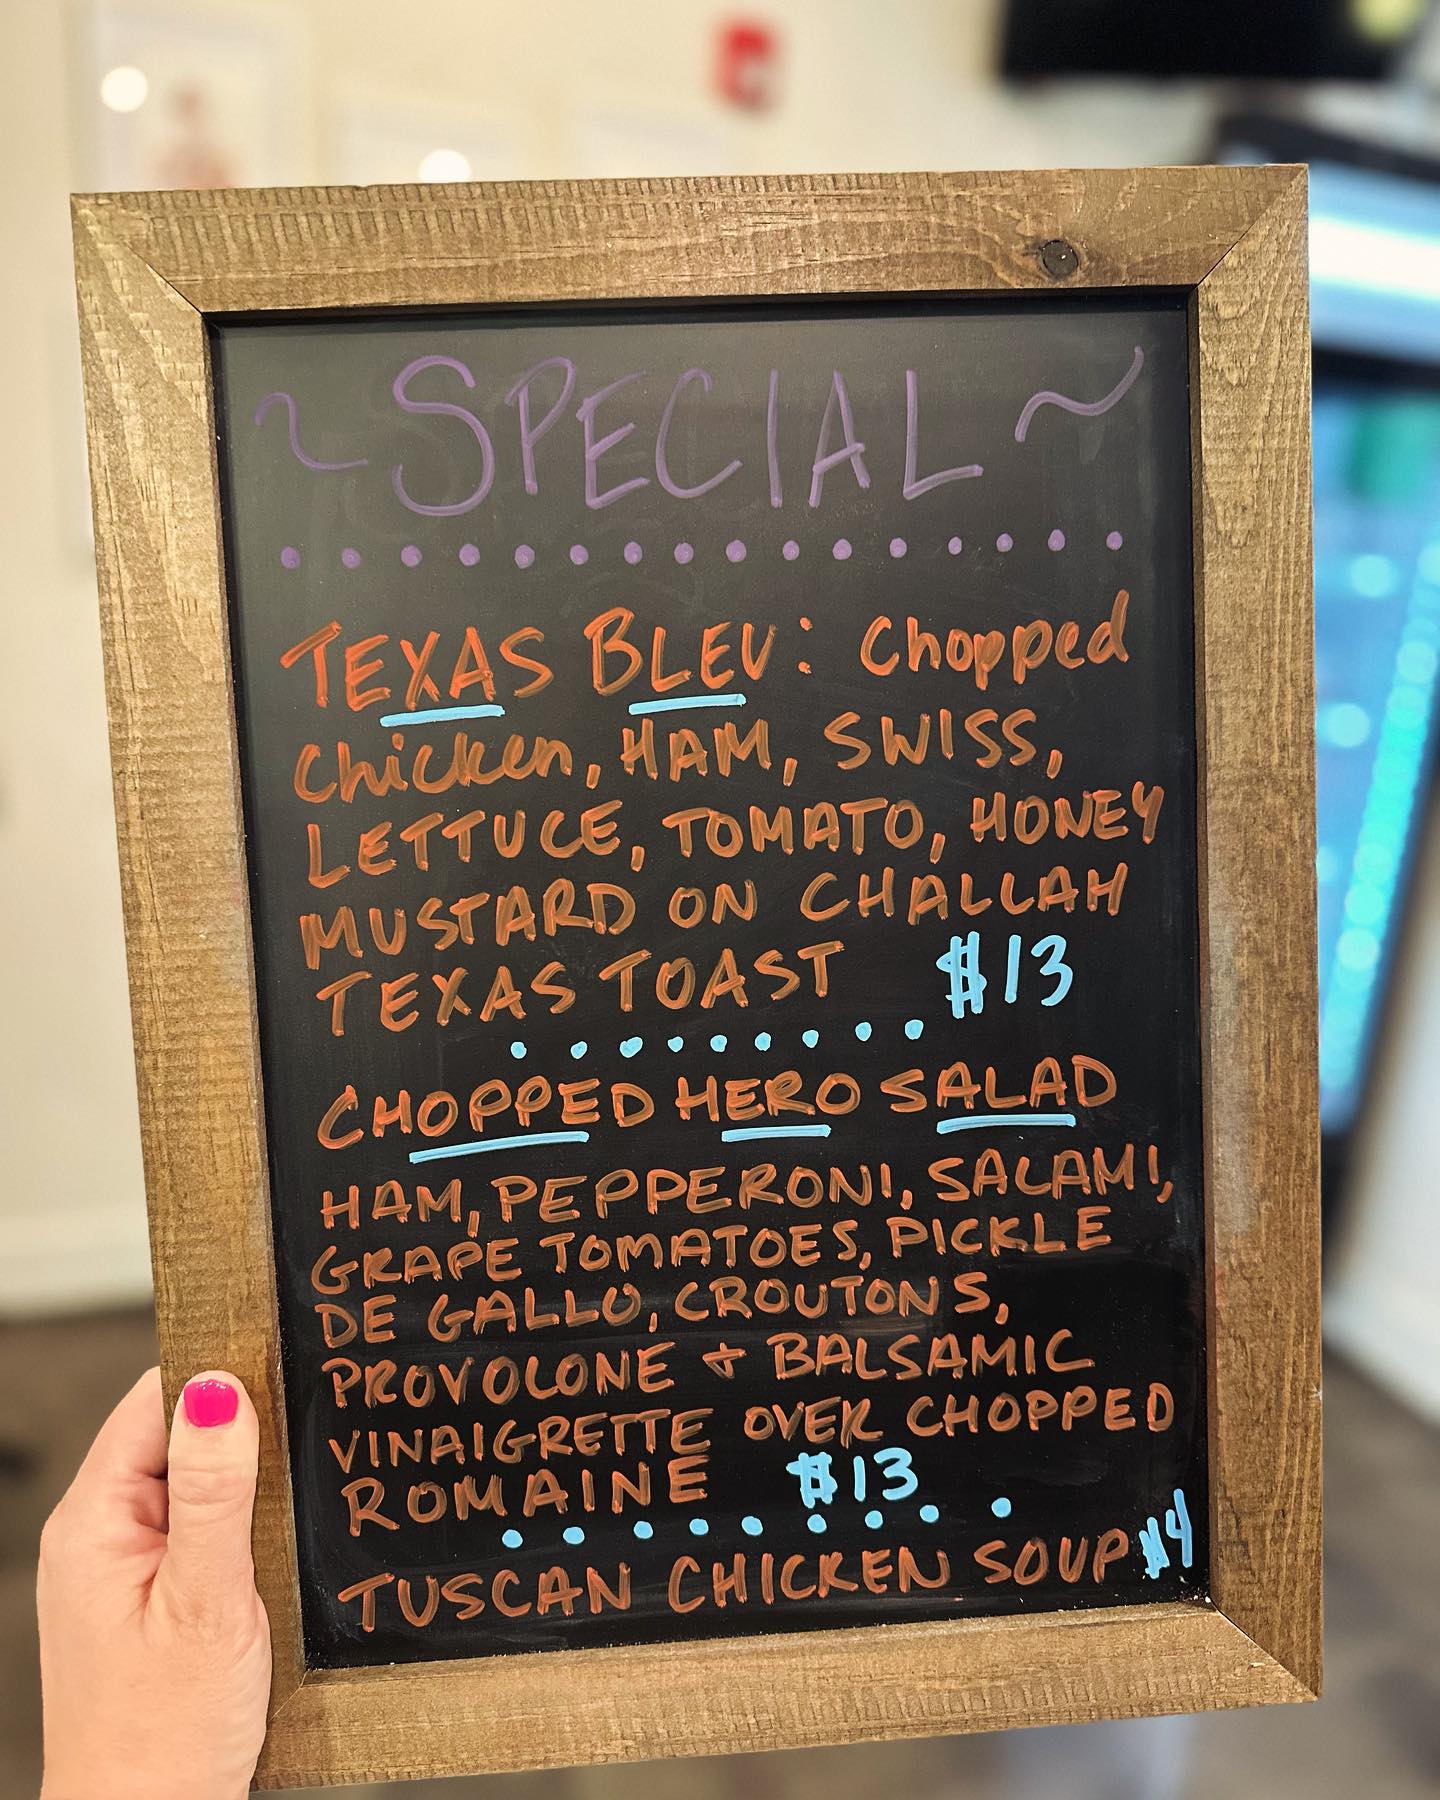 ~ SPECIAL ~
TEXAS BLEU: Chopped
Chicken, HAM, SWISS,
LETTUCE, TOMATO, HONEY
MUSTARD ON CHALLAH
TEXAS TOAST $13
CHOPPED HERO SALAD
HAM, PEPPERONI, SALAMI,
GRAPE TOMATOES, PICKLE
DE GALLO, CROUTONS,
PROVOLONE + BALSAMIC
VINAIGRETTE OVER CHOPPED
ROMAINE $13
TUSCAN CHICKEN SOUP $4